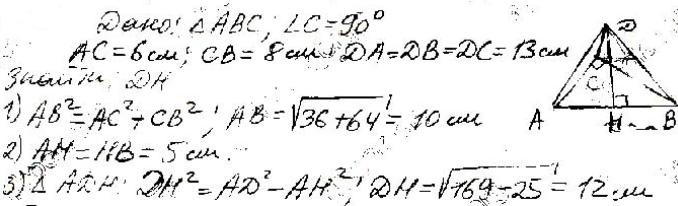 Дано: △ABC; ∠C=90°
AC=6см; CB=8см; DA=DB=DC=13см
Знайти: DH
1) AB²=AC²+CB²; AB=√36+64=10см
2) AH=HB=5см.
3) △ADH: DH²=AD²-AH²; DH=√169-25=12см
D
C
A H B